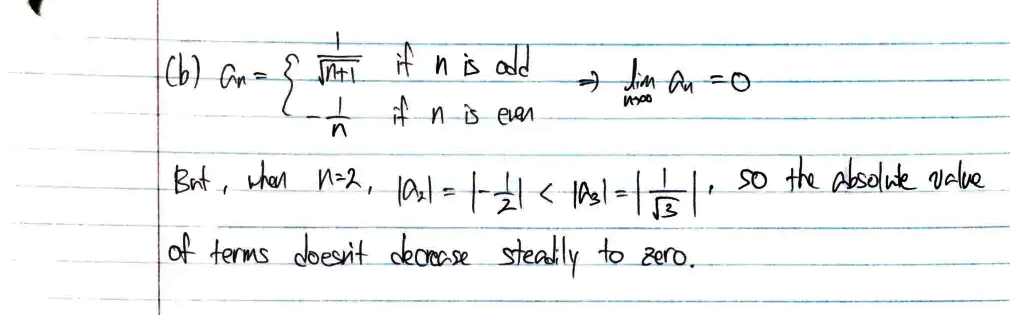 (b) aₙ = { 1/√(n+1) if n is odd ⇒ lim n→∞ aₙ = 0
-1/n if n is even
But, when n=2, |a₂| = |-1/2| < |a₃| = |1/√3|, so the absolute value
of terms doesn't decrease steadily to zero.